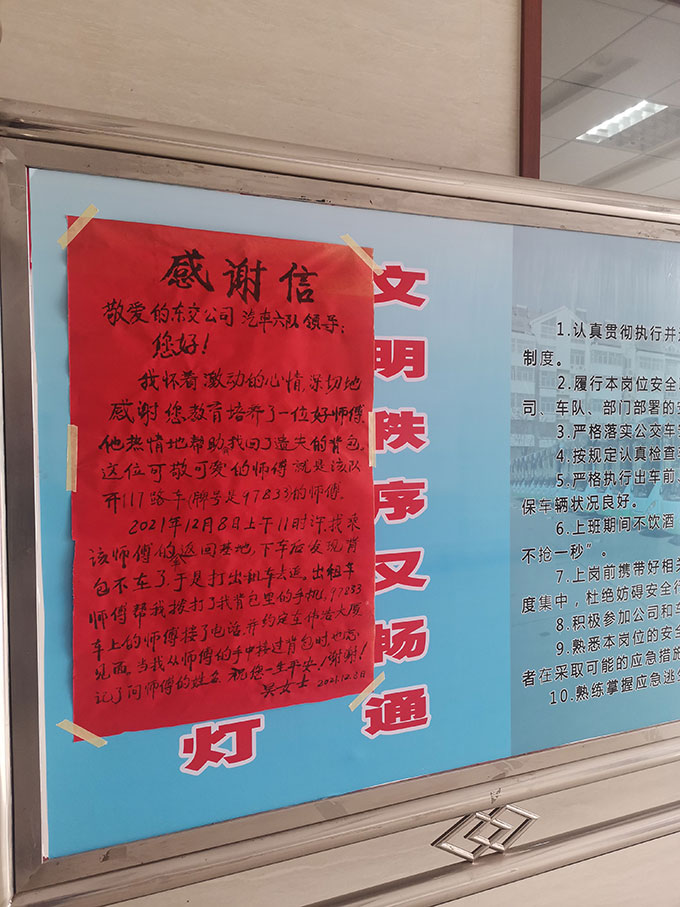 感谢信
敬爱的东交公司汽车六队领导:
您好!
我怀着激动的心情,深切地
感谢您教育培养了一位好师傅.
他热情地帮助我找回了遗失的背包.
这位可敬可爱的师傅就是该队
开117路车(牌号是97833)的师傅.
2021年12月8日上午11时许,我乘
该师傅的车返回基地,下车后发现背
包不在了,于是打出租车去追.出租车
师傅帮我拨打了我背包里的手机,97833
车上的师傅接了电话,并约定在伟浩大厦
见面.当我从师傅的手中接过背包时也忘
记了问师傅的姓名.祝您一生平安!谢谢!
吴女士 2021.12.8日
文明秩序又畅通
灯
1.认真贯彻执行并
制度。
2.履行本岗位安全
司、车队、部门部署的
3.严格落实公交车
4.按规定认真检查
5.严格执行出车前、
保车辆状况良好。
6.上班期间不饮酒
不抢一秒”。
7.上岗前携带好相
度集中,杜绝妨碍安全行
8.积极参加公司和车
9.熟悉本岗位的安全
者在采取可能的应急措施
10.熟练掌握应急逃生